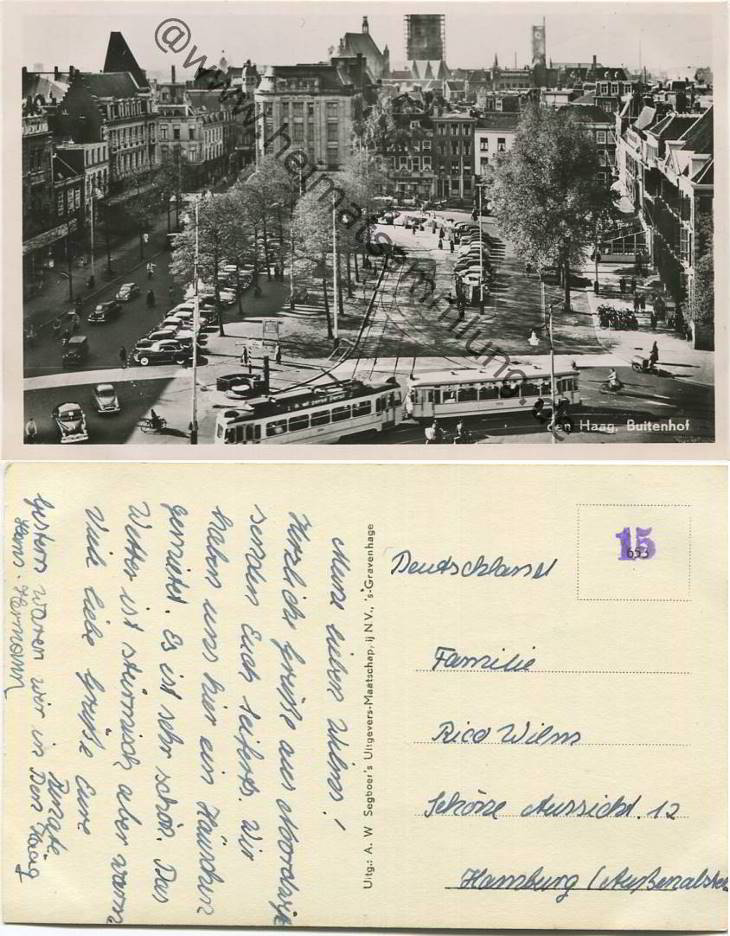 @www.heimatsammlung.de
den Haag, Buitenhof
Meine lieben Wilms!
Herzliche Grüße aus Noordwijk
senden Euch Seiferts. Wir
haben uns hier ein Häuschen
gemietet. Es ist sehr schön. Das
Wetter ist stürmisch aber warm
Viele liebe Grüße Eure
Renate
Hans-Hermann
Gestern waren wir in Den Haag
Uitg.: A. W. Segboer's Uitgevers-Maatschappij N.V., 's-Gravenhage
15
653
Deutschland
Familie
Rico Wilm
Schöne Aussicht. 12
Hamburg (Außenalster